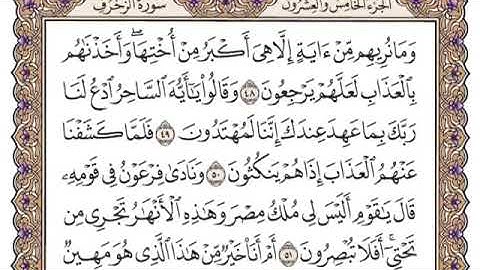 الجزء الخامس والعشرون سورة الزخرف
وَمَا نُرِيهِم مِّنْ ءَايَةٍ إِلَّا هِىَ أَكْبَرُ مِنْ أُخْتِهَا ۖ وَأَخَذْنَٰهُم
بِالْعَذَابِ لَعَلَّهُمْ يَرْجِعُونَ ٤٨ وَقَالُوا۟ يَٰٓأَيُّهَ السَّاحِرُ ادْعُ لَنَا
رَبَّكَ بِمَا عَهِدَ عِندَكَ إِنَّنَا لَمُهْتَدُونَ ٤٩ فَلَمَّا كَشَفْنَا
عَنْهُمُ الْعَذَابَ إِذَا هُمْ يَنكُثُونَ ٥٠ وَنَادَىٰ فِرْعَوْنُ فِى قَوْمِهِۦ
قَالَ يَٰقَوْمِ أَلَيْسَ لِى مُلْكُ مِصْرَ وَهَٰذِهِ الْأَنْهَٰرُ تَجْرِى مِن
تَحْتِىٓ ۖ أَفَلَا تُبْصِرُونَ ٥١ أَمْ أَنَا۠ خَيْرٌ مِّنْ هَٰذَا الَّذِى هُوَ مَهِينٌ